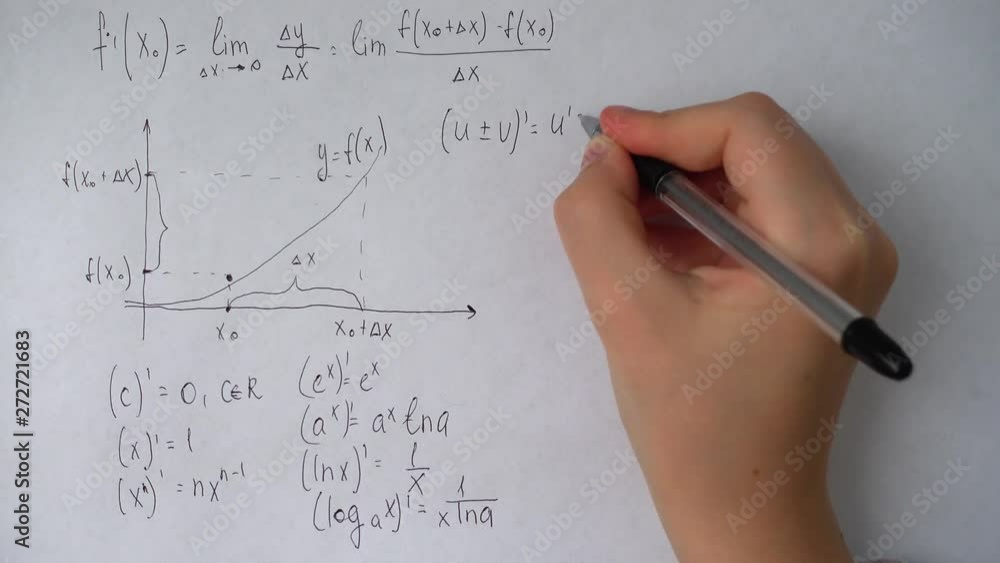 f'(x₀) = lim Δx→0 Δy/Δx = lim f(x₀+Δx) - f(x₀) / Δx
(u ± v)' = u'
y = f(x)
f(x₀ + Δx)
f(x₀)
Δx
x₀ x₀+Δx
(c)' = 0, c∈R
(x)' = 1
(xⁿ)' = nxⁿ⁻¹
(eˣ)' = eˣ
(aˣ)' = aˣ lna
(lnx)' = 1/x
(logₐx)' = 1/xlna
Adobe Stock | #272721683
Adobe Stock